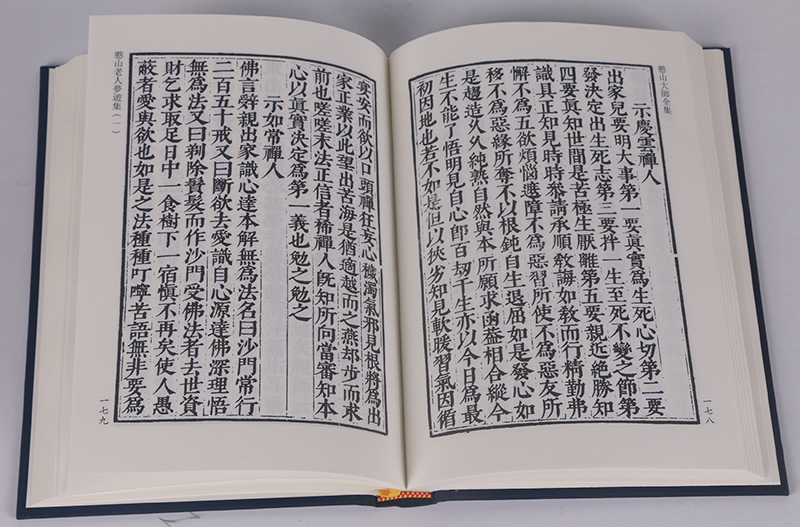 憨山大師全集
示慶雲禪人
出家兒要明大事第一要眞實爲生死心切第二要
發決定出生死志第三要拌一生至死不變之節第
四要眞知世間是苦極生厭離第五要親近絶勝知
識具正知見時時叅請承順敎誨如敎而行精勤弗
懈不爲五欲煩惱遮障不爲惡習所使不爲惡友所
移不爲惡緣所奪不以根鈍自生退屈如是發心如
是趨造久久純熟自然與本所願求函葢相合縱今
生不能了悟明見自心卽百劫千生亦以今日爲最
初因地也若不如是但以狹劣知見軟暖習氣因循
一七八
宴安而欲以口頭禪狂妄心穢濁氣邪見根將爲出
家正業以此望出苦海是猶適越而之燕却步而求
前也嗟嗟末法正信者稀禪人旣知所向當審知本
心以眞實決定爲第一義也勉之勉之
示如常禪人
佛言辤親出家識心達本解無爲法名曰沙門常行
二百五十戒又曰斷欲去愛識自心源達佛深理悟
無爲法又曰剃除鬚髮而作沙門受佛法者去世資
財乞求取足日中一食樹下一宿愼不再矣使人愚
蔽者愛與欲也如是之法種種叮嚀苦語無非要爲
憨山老人夢遊集（一）
一七九